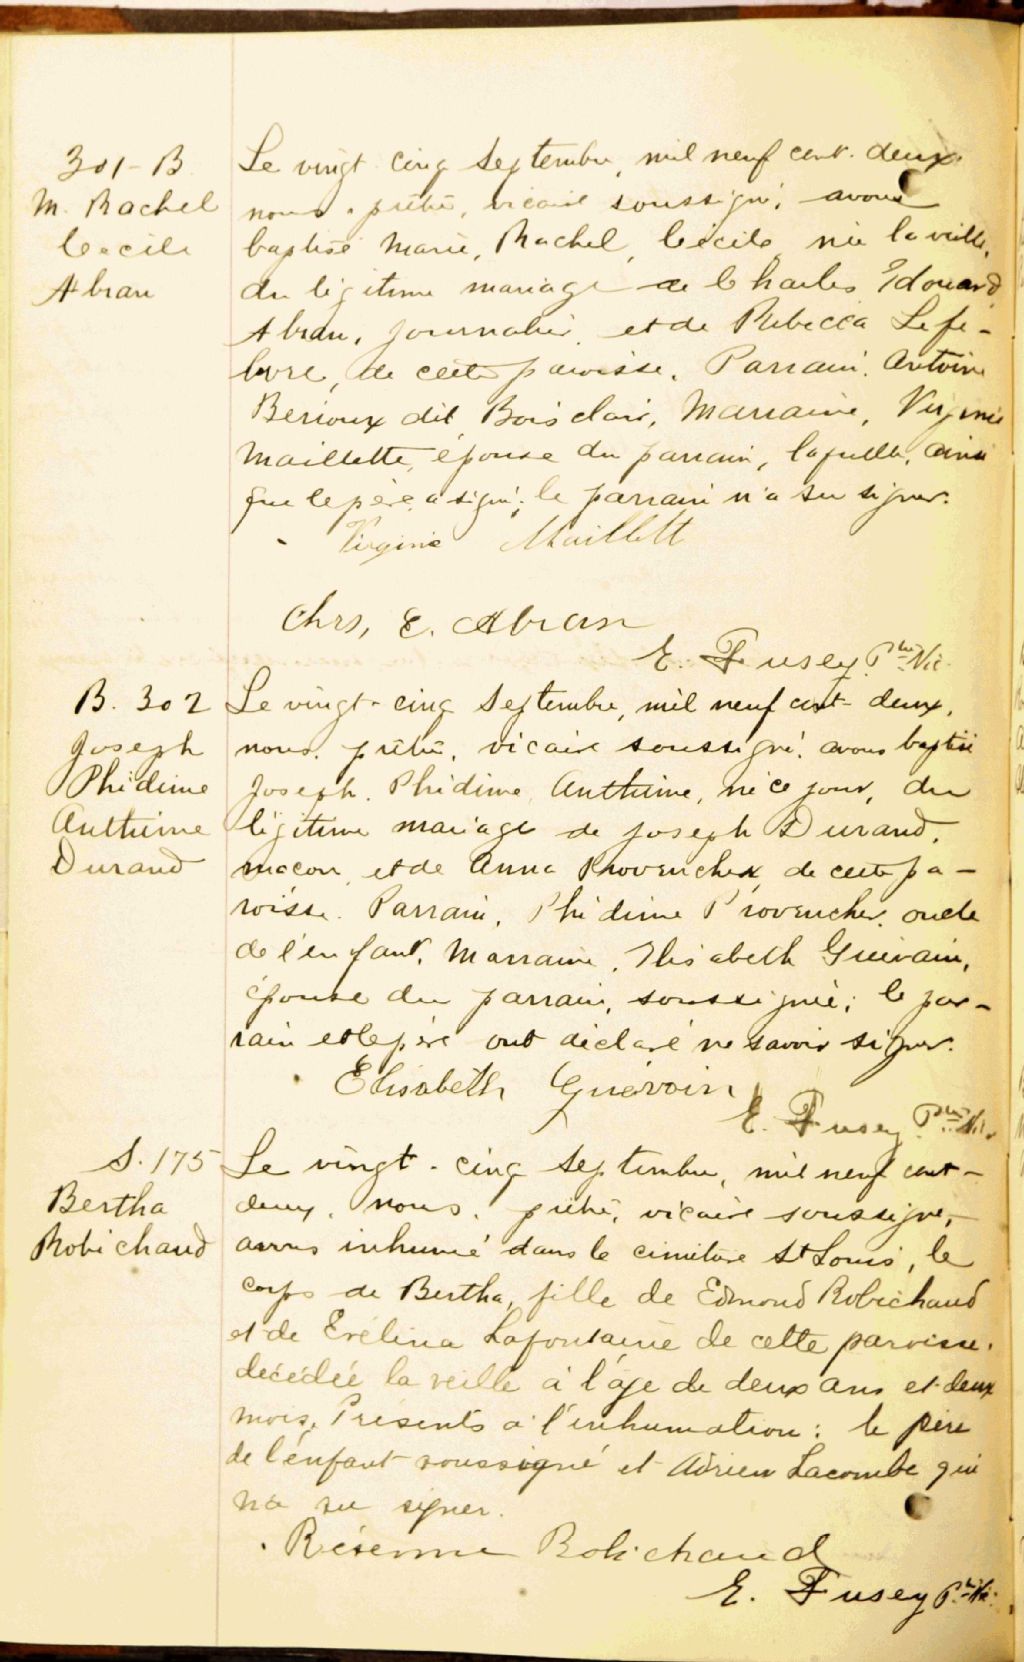 301-B
M. Rachel
Cécile
Abran
Le vingt cinq Septembre, mil neuf cent deux
nous, prêtre, vicaire soussigné, avons
baptisé Marie, Rachel, Cécile, née la veille,
du légitime mariage de Charles Edouard
Abran, journalier, et de Rebecca Lefe-
bvre, de cette paroisse. Parrain, Antoine
Berioux dit Boisclair, Marraine, Virginie
Maillette, épouse du parrain, laquelle, ainsi
que le père a signé; le parrain n'a su signer.
Virginie Maillett
Chrs, E. Abran
E. Fusey, Ptre Vic.
B. 302
Joseph
Phidime
Anthime
Durand
Le vingt-cinq Septembre, mil neuf cent deux,
nous, prêtre, vicaire soussigné, avons baptisé
Joseph, Phidime, Anthime, né ce jour, du
légitime mariage de Joseph Durand,
macon, et de Anna Provencher, de cette pa-
roisse. Parrain, Phidime Provencher, oncle
de l'enfant, Marraine, Elisabeth Guévain,
épouse du parrain, soussignée; le par-
rain et le père ont déclaré ne savoir signer.
Elisabeth Guévain
E. Fusey, Ptre Vic.
S. 175
Bertha
Robichaud
Le vingt-cinq Septembre, mil neuf cent-
deux, nous, prêtre, vicaire soussigné,
avons inhumé dans le cimitère St Louis, le
corps de Bertha, fille de Edmond Robichaud
et de Evélina Lafontaine de cette paroisse.
décédée la veille à l'âge de deux ans et deux
mois. Présents à l'inhumation: le père
de l'enfant soussigné et Adrien Lacombe qui
n'a su signer.
Robichaud
E. Fusey Ptre Vic.